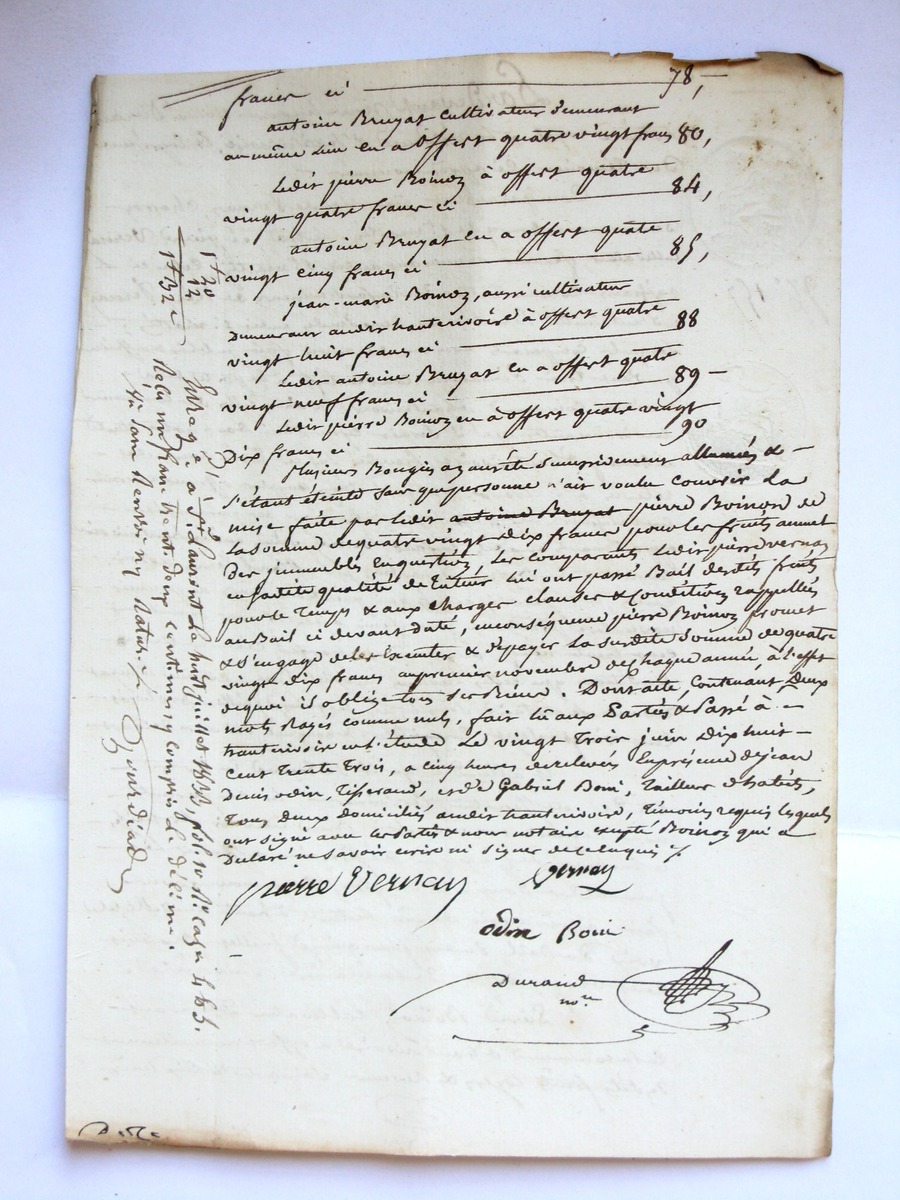 francs ci 78,
antoine Bruyat Cultivateur demeurant
au même Lieu en a offert quatre vingt francs 80,
Ledit pierre Boinon à offert quatre
vingt quatre francs ci 84,
antoine Bruyat en a offert quate
vingt cinq francs ci 85,
jean-marie Boinon, aussi cultivateur
Demeurant audit hauterivoire à offert quatre
vingt huit francs ci 88
Ledit antoine Bruyat en a offert quate
vingt neuf francs ci 89
Ledit pierre Boinon en a offert quatre vingt
Dix francs ci 90
plusieurs Bougies ayant été successivement allumées &
s'étant éteintes sans que personne n'ait voulu couvrir La
mise faite par Ledit antoine Bruyat pierre Boinon de
La somme de quatre vingt Dix francs pour les fruits annuel
Des immeubles En question, Les comparants Ledit pierre vernay
en sa dite qualité de tuteur lui ont passé Bail desdits fruits
pour le Temps & aux charges clauses & Conditions rappellés
au Bail ci devant daté, en conséquence pierre Boinon promet
& s'engage de les Executer & de payer La susdite somme de quatre
vingt dix francs au premier novembre de chaque année, à l'effet
de quoi il oblige tous ses Biens. Dont acte, Contenant Deux
mots Rayés comme nuls, fait Lu aux Parties & Passé à
hauterivoire en L'étude Le vingt Trois juin Dix huit
Cent Trente Trois, a cinq heures de relevée En présence de jean
Denis odin, Tisserand, et de Gabriel Boni, Tailleur d'habits,
Tous Deux domiciliés audit hauterivoire, Témoins requis lesquels
ont signé avec les Parties & nous notaire excepté Boinon qui a
Declaré ne savoir écrire ni signer de ce requis
pierre Vernay Vernay
odin Boni
Durand
nore
1f 20
12
1f 32c
Enregé à St Laurent Le huit juillet 1833, fol. 10 Ro. case 4 & 5.
Reçu un franc trente deux centimes y compris le décime.